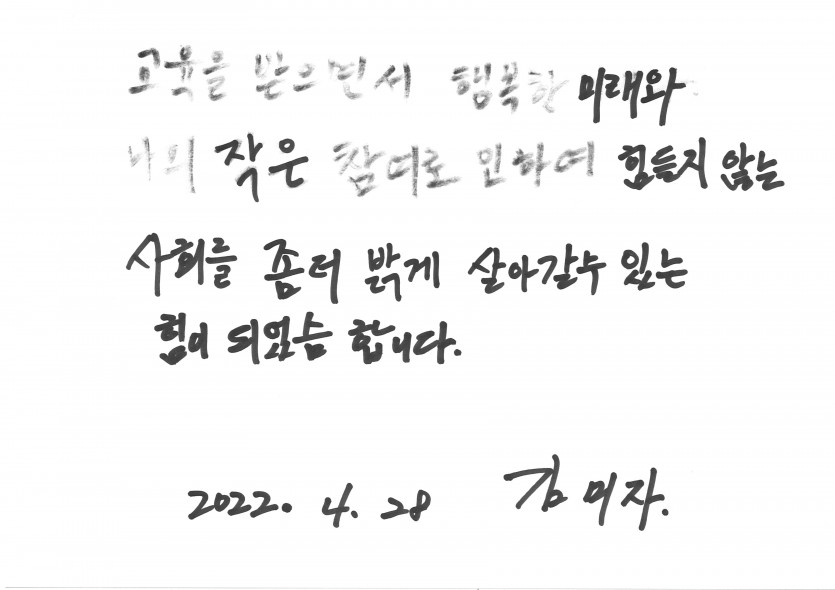 교육을 받으면서 행복한 미래와
나의 작은 참여로 인하여 힘들지 않는
사회를 좀더 밝게 살아갈수 있는
힘이 되었슴 합니다.
2022. 4. 28 김미자.